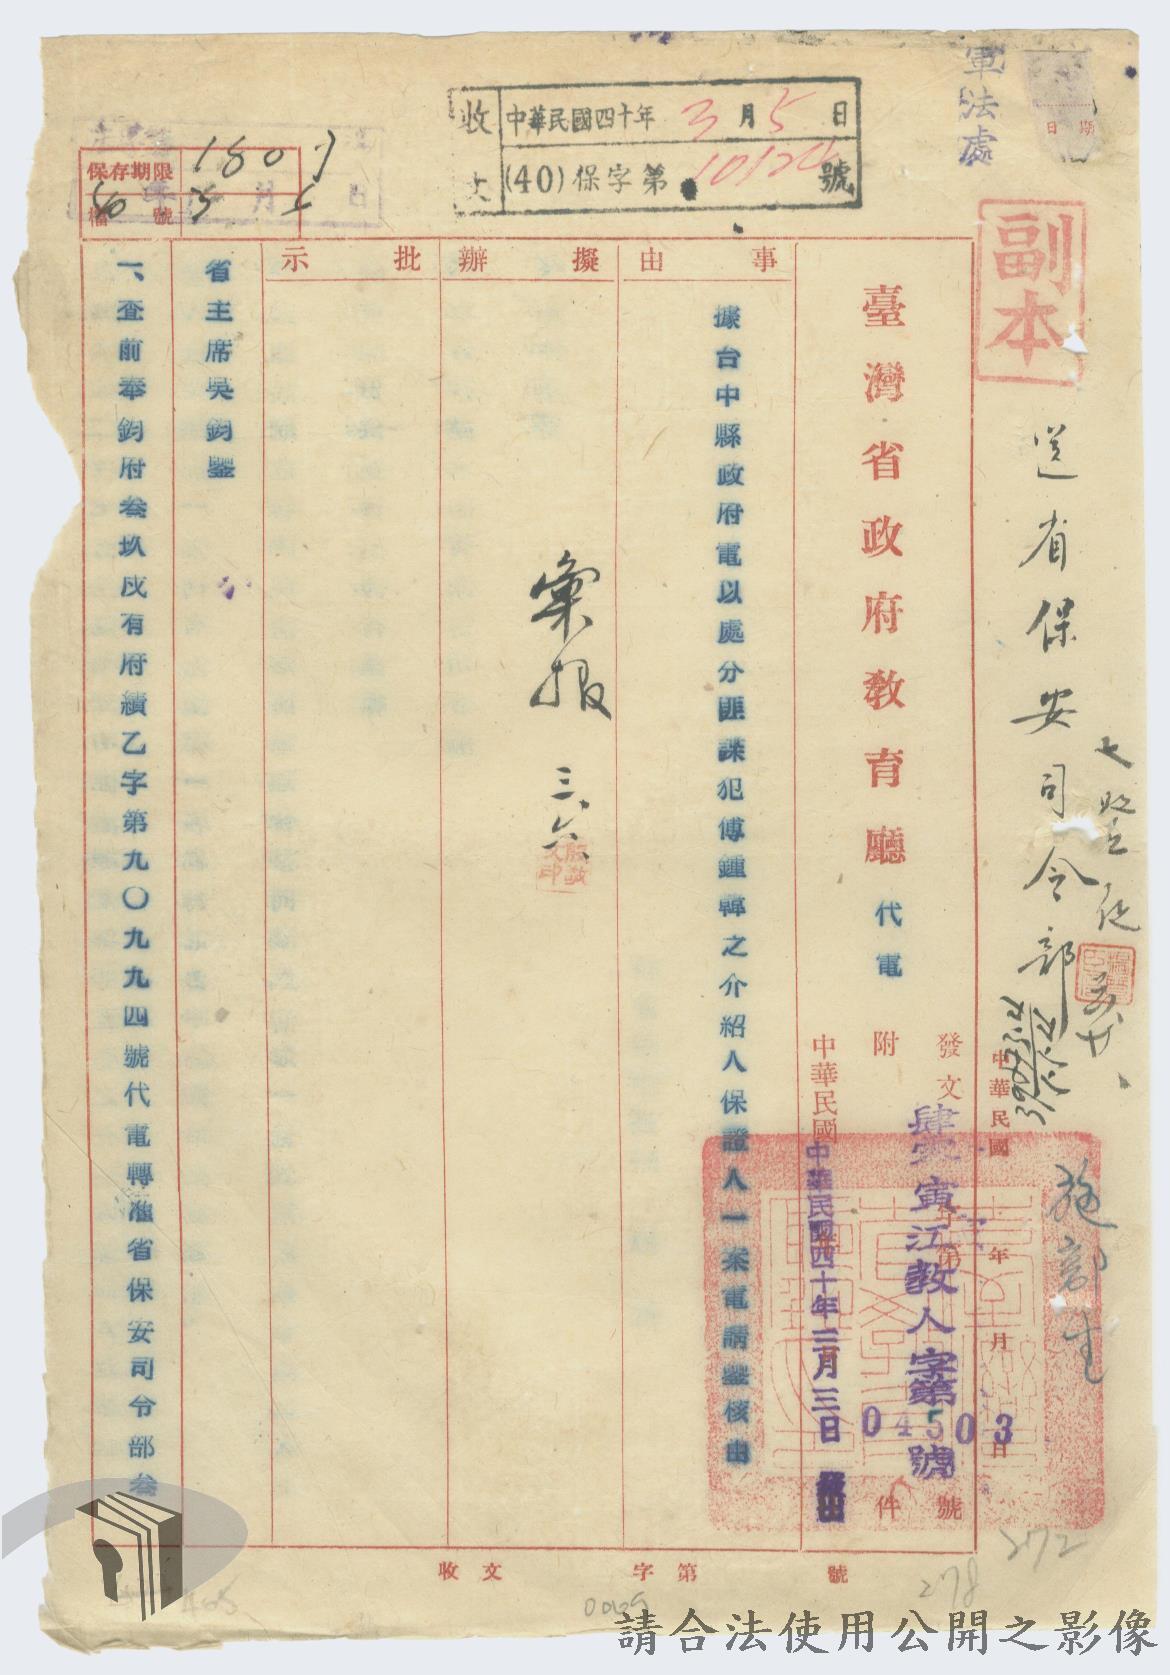 軍法處
日期
副本
送省保安司令部
中華民國 年 月 日
收文
中華民國四十年3月5日
(40)保字第10120號
臺灣省政府教育廳代電
發文 字第 號
肆零寅江教人字第04503號
附 件
中華民國
中華民國四十年三月三日
發出
事由
據台中縣政府電以處分匪諜犯傅鍾韓之介紹人保證人一案電請鑒核由
擬辦
彙報 三、六
批示
省主席吳鈞鑒
一、查前奉鈞府叁玖戌有府績乙字第九〇九九四號代電轉准省保安司令部叁
保存期限
檔號
收文 字第 號
272
278
請合法使用公開之影像